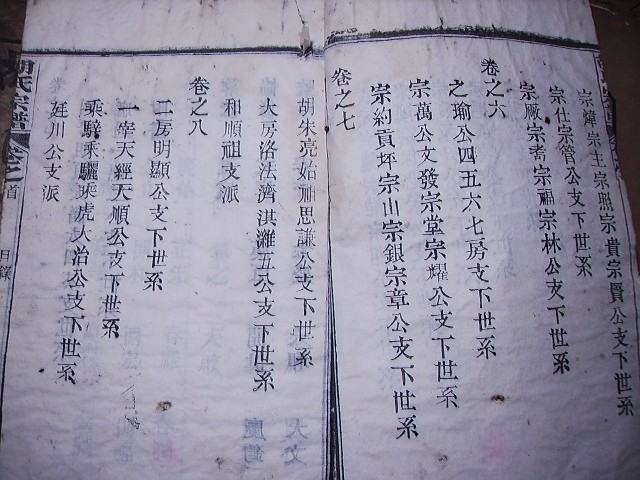 宗煒宗主宗照宗貴宗賢公支下世系
宗仕宗管公支下世系
宗廠宗耆宗福宗林公支下世系
卷之六
之瑜公四五六七房支下世系
宗萬公文發宗堂宗耀公支下世系
宗約貢坪宗山宗銀宗章公支下世系
卷之七
胡朱亮始祖思謙公支下世系
大房洛法濟淇濰五公支下世系
和順祖支派
卷之八
二房明顯公支下世系
一宰天經天順公支下世系
乘騤乘驪乘虎大治公支下世系
廷川公支派
胡氏宗譜 卷之首 目錄